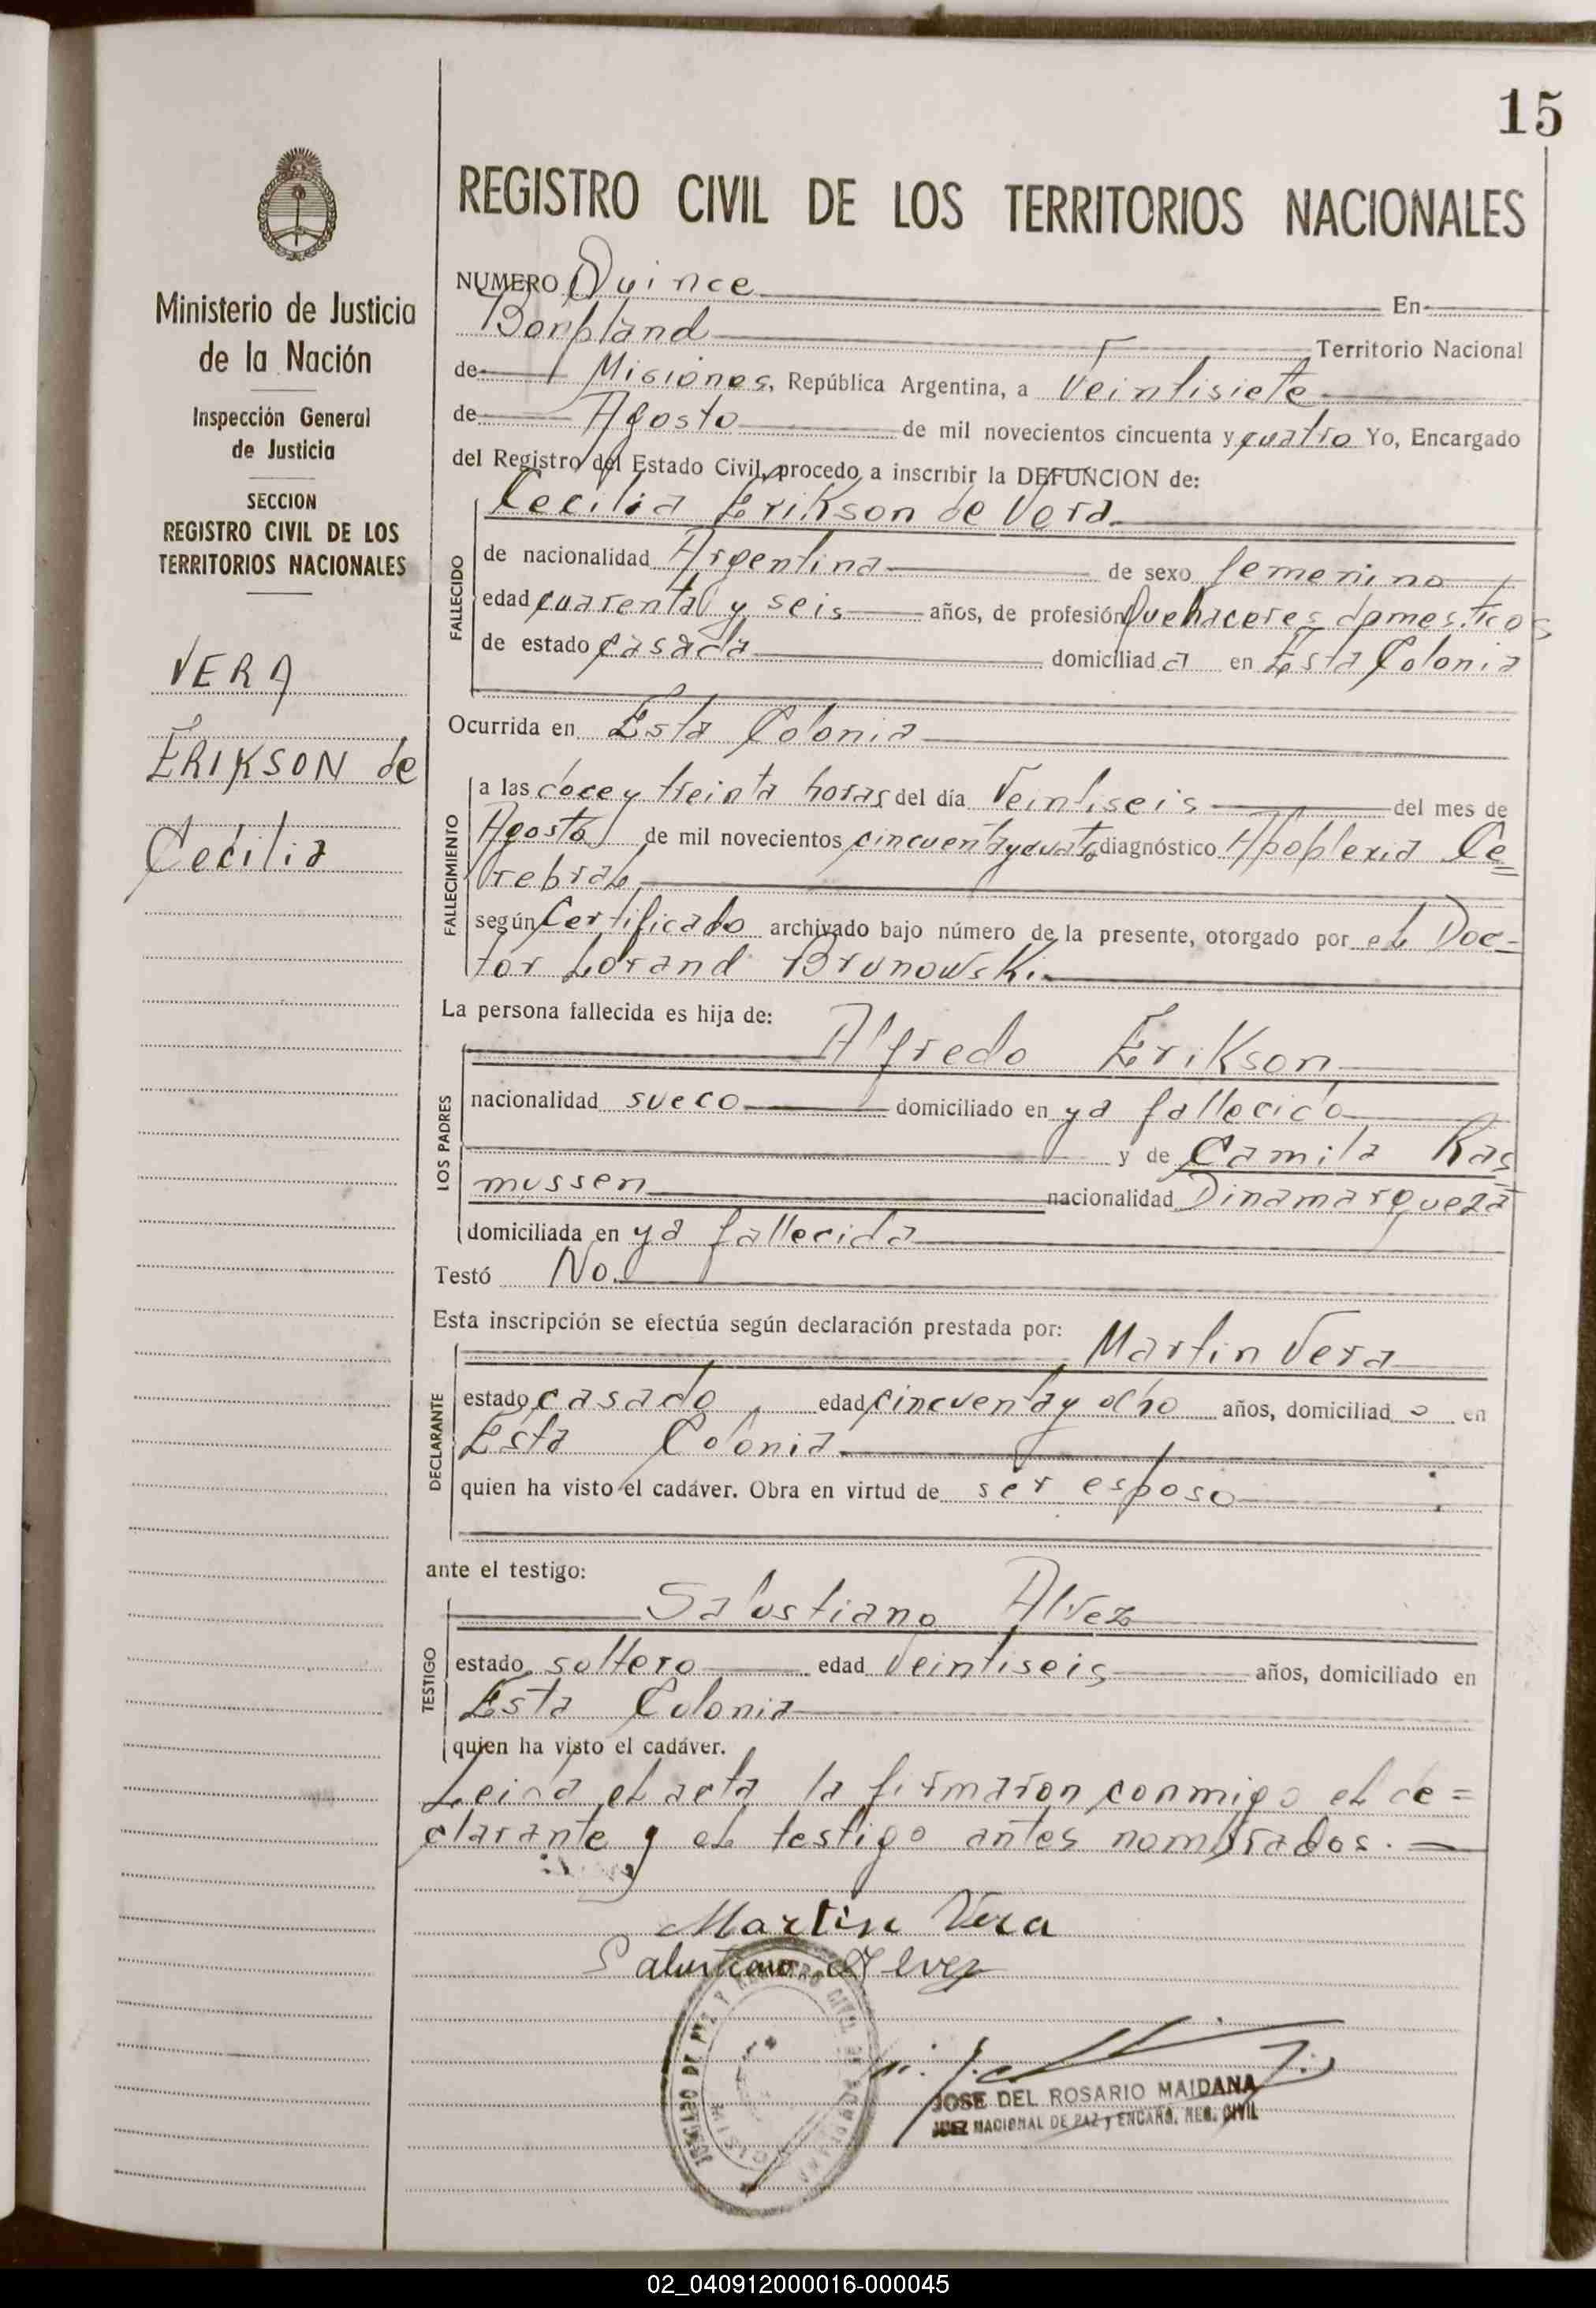 15
REGISTRO CIVIL DE LOS TERRITORIOS NACIONALES
Ministerio de Justicia
de la Nación
Inspección General
de Justicia
SECCION
REGISTRO CIVIL DE LOS
TERRITORIOS NACIONALES
VERA
ERIKSON de
Cecilia
NUMERO Quince En
Bonpland Territorio Nacional
de Misiones, República Argentina, a Veintisiete
de Agosto de mil novecientos cincuenta y cuatro Yo, Encargado
del Registro del Estado Civil, procedo a inscribir la DEFUNCION de:
Cecilia Erikson de Vera
FALLECIDO
de nacionalidad Argentina de sexo femenino
edad cuarenta y seis años, de profesión Quehaceres domesticos
de estado casada domiciliad a en Esta Colonia
Ocurrida en Esta Colonia
FALLECIMIENTO
a las doce y treinta horas del día Veintiseis del mes de
Agosto de mil novecientos cincuenta y cuatro diagnóstico Apoplexia Ce=
rebral
según Certificado archivado bajo número de la presente, otorgado por el Doc-
tor Lorand Brunowski.
La persona fallecida es hija de:
LOS PADRES
Alfredo Erikson
nacionalidad sueco domiciliado en ya fallecido
y de Camila Ras
mussen nacionalidad Dinamarqueza
domiciliada en ya fallecida
Testó No.
Esta inscripción se efectúa según declaración prestada por:
Martin Vera
DECLARANTE
estado casado edad cincuenta y ocho años, domiciliad o en
Esta Colonia
quien ha visto el cadáver. Obra en virtud de ser esposo
ante el testigo:
Salustiano Alvez
TESTIGO
estado soltero edad Veintiseis años, domiciliado en
Esta Colonia
quien ha visto el cadáver.
Leida el acta la firmaron conmigo el de=
clarante y el testigo antes nombrados.
Martin Vera
Salustiano Alvez
JUZGADO DE PAZ Y REGISTRO CIVIL
JOSE DEL ROSARIO MAIDANA
JUEZ NACIONAL DE PAZ y ENCARG. REG. CIVIL
02_040912000016-000045